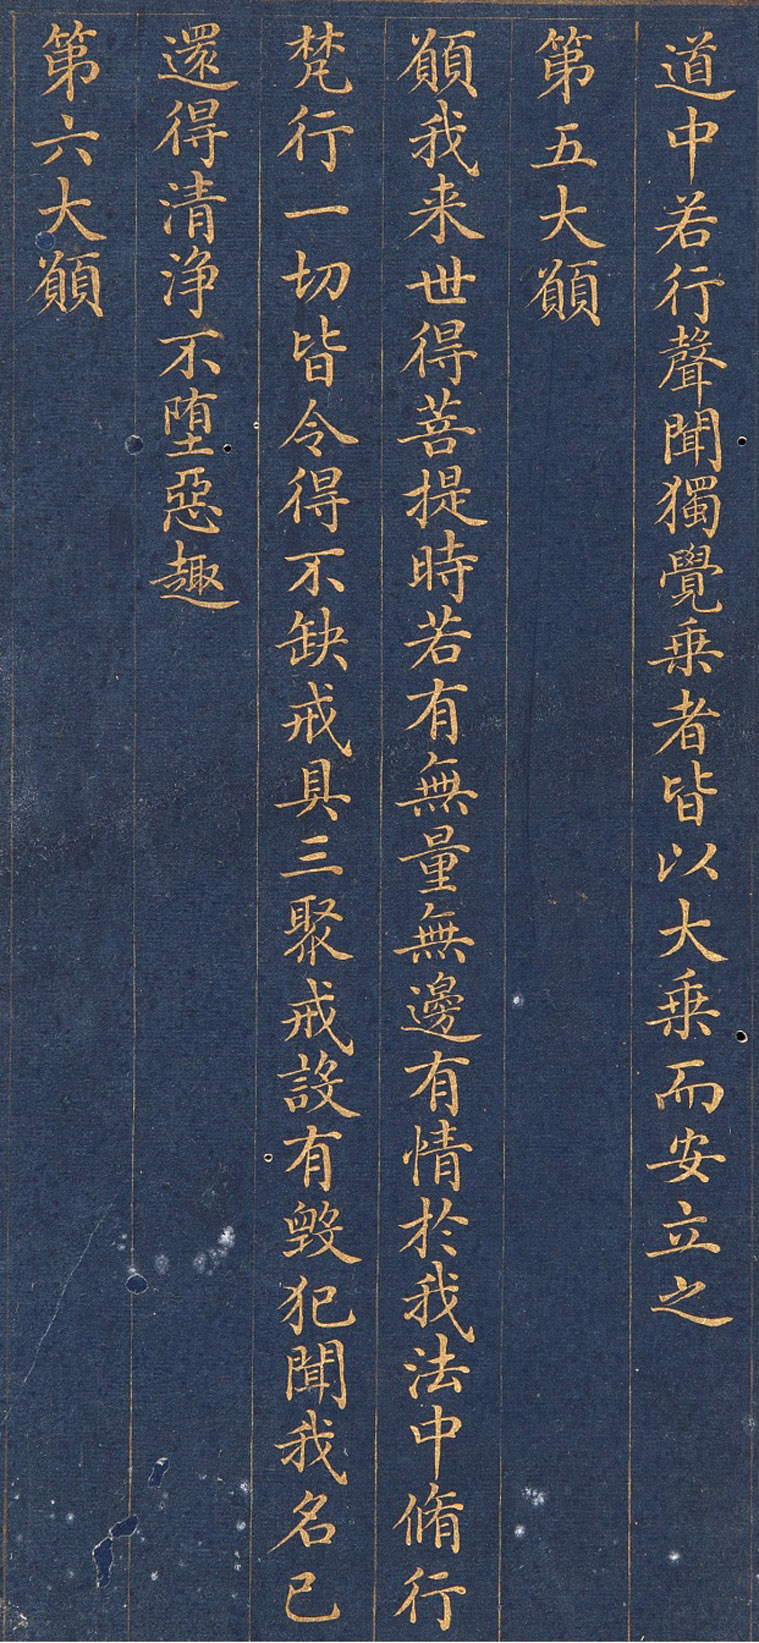 道中若行聲聞獨覺乗者皆以大乗而安立之
第五大願
願我来世得菩提時若有無量無邊有情於我法中脩行
梵行一切皆令得不缺戒具三聚戒設有毀犯聞我名已
還得清淨不墮惡趣
第六大願